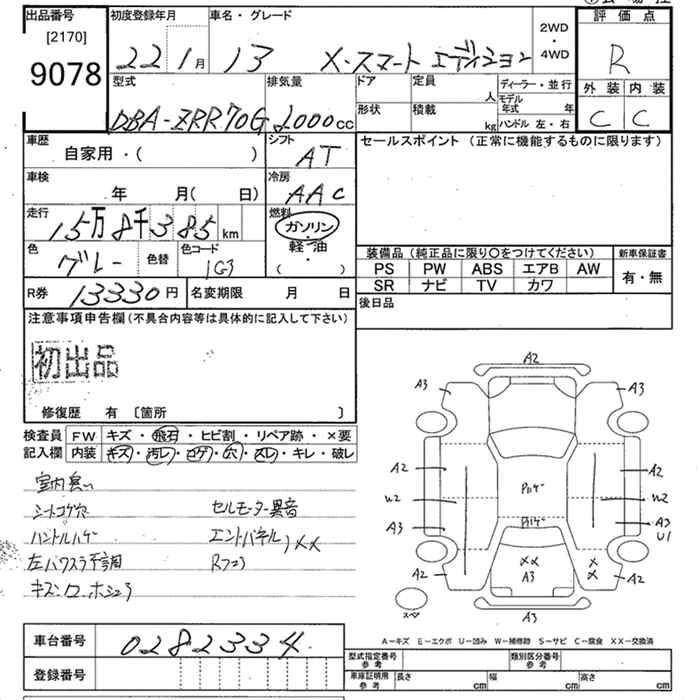 出品番号
[2170]
9078
初度登録年月
22 1月
車名・グレード
13 X・スマートエディション
2WD
・
4WD
評価点
R
外装 内装
C C
型式
DBA-ZRR70G
排気量
2000cc
ドア
定員
人
形状
積載
kg
ディーラー・並行
モデル年式 年
ハンドル 左・右
車歴
自家用・( )
シフト
AT
セールスポイント (正常に機能するものに限ります)
車検
年 月( 日)
冷房
AAC
走行
15万8千385km
燃料
ガソリン
・
軽油
・
( )
色
グレー
色替
色コード
1G3
装備品 (純正品に限り〇をつけてください)
新車保証書
PS PW ABS エアB AW
SR ナビ TV カワ
有・無
R券
13330円
名変期限 月 日
後日品
注意事項申告欄(不具合内容等は具体的に記入して下さい)
初出品
修復歴 有 〔箇所 〕
検査員記入欄
FW キズ・飛石・ヒビ割・リペア跡・×要
内装 キズ・汚レ・コゲ・穴・スレ・キレ・破レ
シートコゲ穴
セルモーター異音
ハンドルハゲ
エンドパネル
XX
左パワスラ不調
A2
A3 A3
A2 A2
W2 W2
A3 A3
U1
A2 A2
XX
A3
XX
A3
スペ
A―キズ E―エクボ U―凹み W―補修跡 S―サビ C―腐食 XX―交換済
車台番号
0282334
登録番号
型式指定番号
参考
類別区分番号
参考
車庫証明用
参考
長さ cm
幅 cm
高さ cm